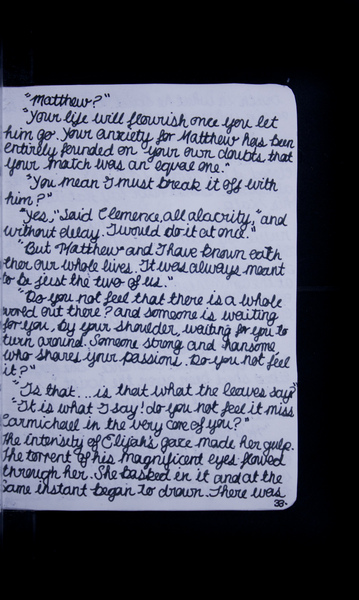 "Matthew?"
"Your life will flourish once you let
him go. Your anxiety for Matthew has been
entirely founded on your own doubts that
your match was an equal one."
"You mean I must break it off with
him?"
"Yes," Said Clemence, all alacrity, "and
without delay. I would do it at once."
"But Matthew and I have known eath
ther our whole lives. It was always meant
to be just the two of us."
"Do you not feel that there is a whole
world out there? and someone is waiting
for you, by your shoulder, waiting for you to
turn around. Someone strong and hansome
who shares your passions. Do you not feel
it?"
"Is that... is that what the leaves say?"
"It is what I say! do you not feel it miss
Carmichael in the very core of you?"
The intensity of Elijah's gaze made her gulp.
The torrent of his magnificent eyes flowed
through her. She basked in it and at the
same instant began to drown. There was
38.